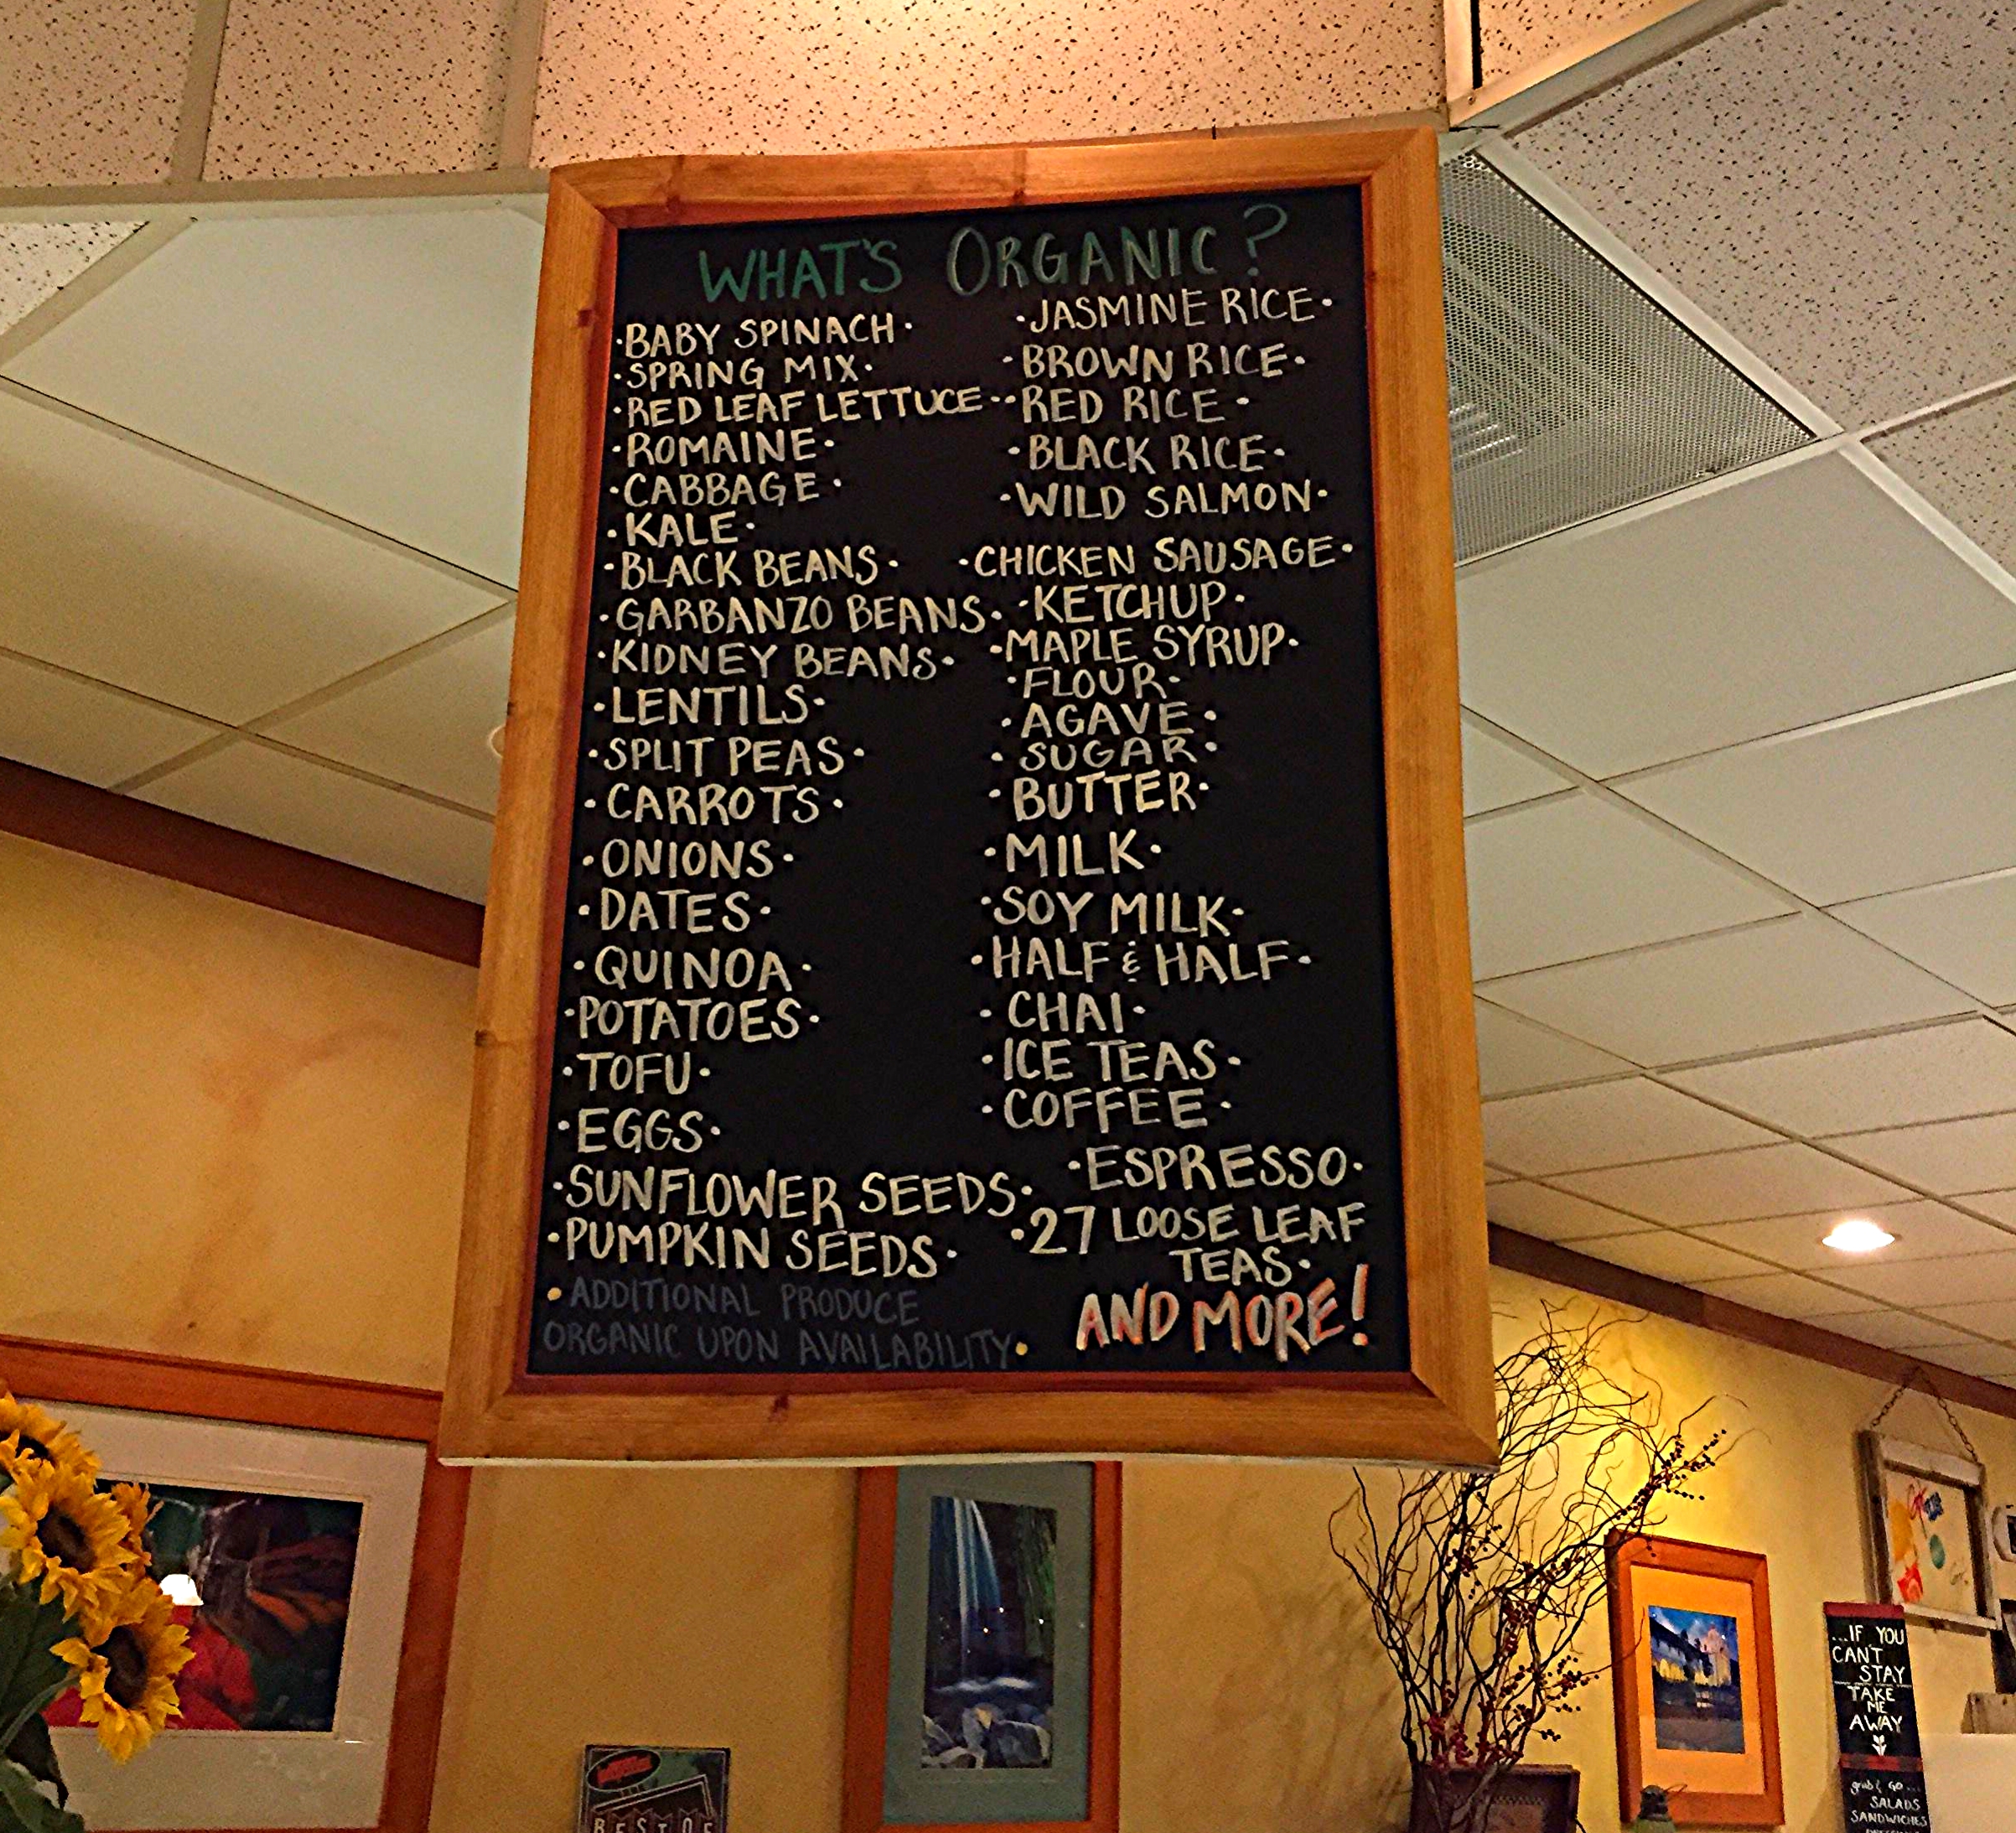 WHAT'S ORGANIC?
·BABY SPINACH·
·SPRING MIX·
·RED LEAF LETTUCE·
·ROMAINE·
·CABBAGE·
·KALE·
·BLACK BEANS·
·GARBANZO BEANS·
·KIDNEY BEANS·
·LENTILS·
·SPLIT PEAS·
·CARROTS·
·ONIONS·
·DATES·
·QUINOA·
·POTATOES·
·TOFU·
·EGGS·
·SUNFLOWER SEEDS·
·PUMPKIN SEEDS·
·ADDITIONAL PRODUCE
ORGANIC UPON AVAILABILITY·
·JASMINE RICE·
·BROWN RICE·
·RED RICE·
·BLACK RICE·
·WILD SALMON·
·CHICKEN SAUSAGE·
·KETCHUP·
·MAPLE SYRUP·
·FLOUR·
·AGAVE·
·SUGAR·
·BUTTER·
·MILK·
·SOY MILK·
·HALF & HALF·
·CHAI·
·ICE TEAS·
·COFFEE·
·ESPRESSO·
·27 LOOSE LEAF
TEAS·
AND MORE!
BEST OF
...IF YOU
CAN'T
STAY
TAKE
ME
AWAY
grab & go...
SALADS
SANDWICHES